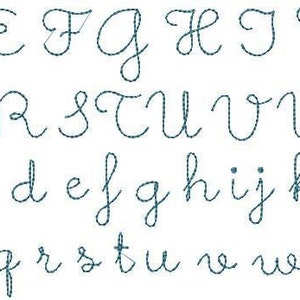 E F G H I
R S T U V
d e f g h i j k
q r s t u v w